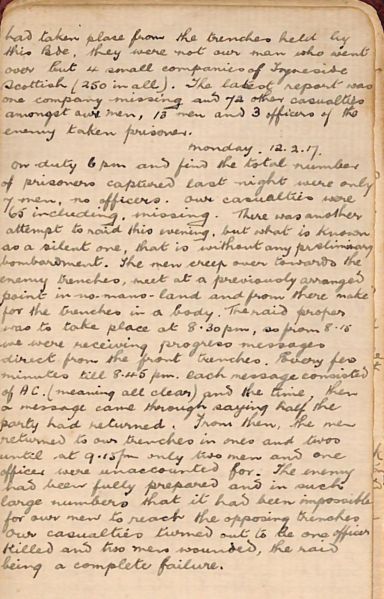 had taken place from the trenches held by
this Bde, they were not our men who went
over but 4 small companies of Tyneside
Scottish (250 in all). The latest report was
one company missing and 72 other casualties
amongst our men, 13 men and 3 officers of the
enemy taken prisoner.
Monday. 12.2.17.
On duty 6pm and find the total number
of prisoners captured last night were only
7 men, no officers. Our casualties were
65 including missing. There was another
attempt to raid this evening, but what is known
as a silent one, that is without any preliminary
bombardment. The men creep over towards the
enemy trenches, meet at a previously arranged
point in no-mans-land and from there make
for the trenches in a body. The raid proper
was to take place at 8.30pm, so from 8.15
we were receiving progress messages
direct from the front trenches. Every few
minutes till 8.45 pm. each message consisted
of A.C. (meaning all clear) and the time, then
a message came through saying half the
party had returned. From then, the men
returned to our trenches in ones and twos
until at 9.15pm only two men and one
officer were unaccounted for. The enemy
had been fully prepared and in such
large numbers that it had been impossible
for our men to reach the opposing trenches
Our casualties turned out to be one officer
killed and two men wounded, the raid
being a complete failure.